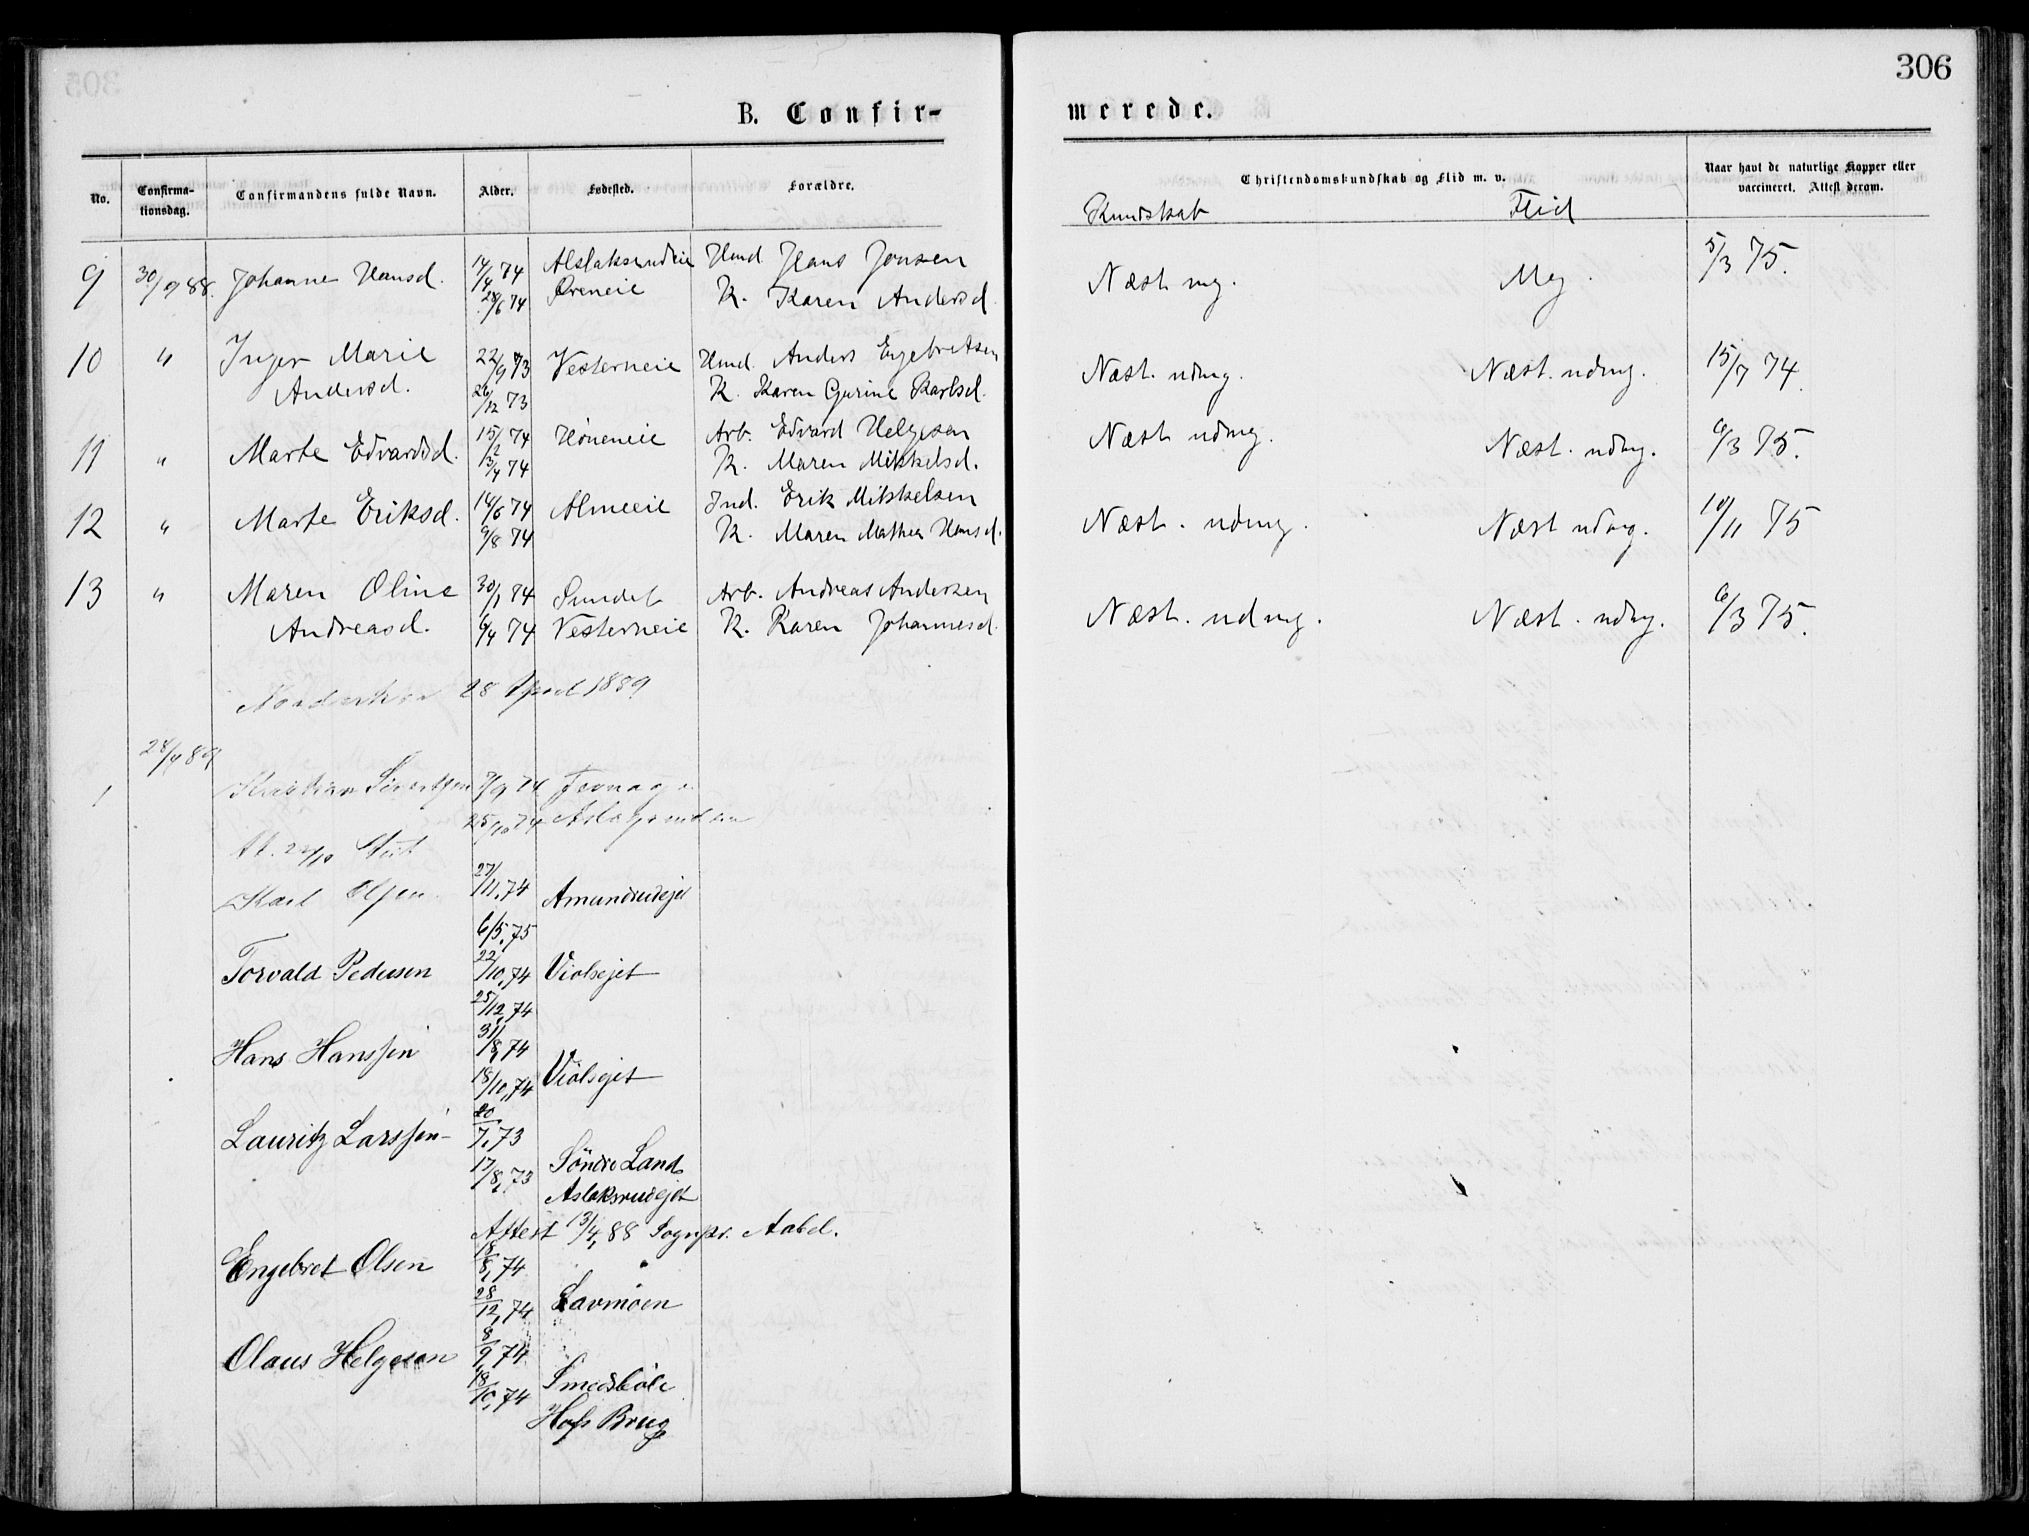 306
B. Confir-
merede.
No.
Confirma-
tionsdag.
Confirmandens fulde Navn.
Alder.
Fødested.
Forældre.
Christendomskundskab og Flid m. v.
Naar havt de naturlige Kopper eller
vaccineret. Attest derom.
Kundskab Flid
9 30/9 88. Johanne Hansd. 14/4 74 Alslaksrudeie Hmd. Hans Jonsen Næst mg. Meg. 5/3 75.
28/6 74 Øreneie K. Karen Andersd.
10 " Inger Marie 22/9 73 Vesterneie Hmd. Anders Engebretsen Næst. udmg. Næst. udmg. 15/7 74.
Andersd. 26/12 73 K. Karen Gurine Karlsd.
11 " Marte Edvardsd. 15/2 74 Høneneie Arb. Edvard Helgesen Næst udmg. Næst. udmg. 6/3 75.
13/4 74 K. Maren Mikkelsd.
12 " Marte Eriksd. 14/6 74 Almeeie Ind. Erik Mikkelsen Næst. udmg. Næst udmg. 10/11 75
9/8 74 K. Maren Mathea Hansd.
13 " Maren Oline 30/1 74 Sundet Arb. Andreas Andersen Næst. udmg. Næst. udmg. 6/3 75.
Andreasd. 6/4 74 Vesterneie K. Karen Johannesd.
28 April 1889
28/4 89
1 Kristian Sivertsen 7/9 74
25/10 74
Karl Olsen. 27/11, 74 Amundrudejet
6/5, 75
Torvald Pedersen 22/10, 74 Violsejet
25/12, 74
Hans Hanssen 31/8, 74
18/10, 74 Violsejet
Lauritz Larssen 20/7, 73
17/8, 73 Söndre Land
Aslaksrudejet
Attest 13/4, 88 Sognpr. Aabel.
Engebret Olsen 18/8, 74
28/12, 74 Lavmoen
Olaus Helgesen 8/9, 74
18/10, 74 Smedsböle
Hofs Brug